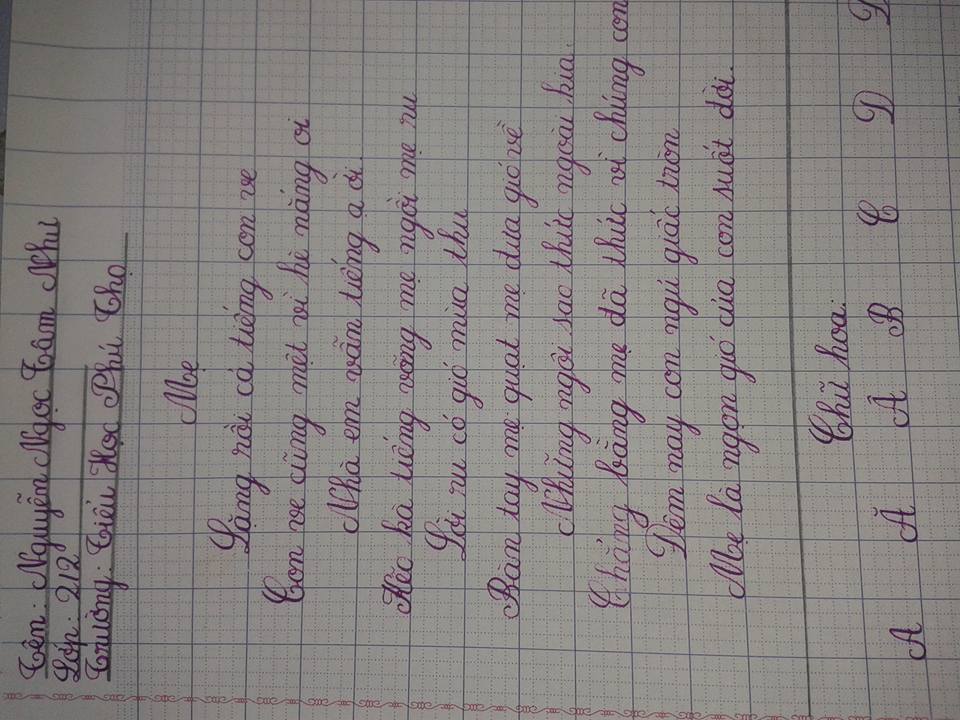 Tên: Nguyễn Ngọc Tâm Như
Lớp: 212
Trường: Tiểu Học Phú Thọ
Mẹ
Lặng rồi cả tiếng con ve
Con ve cũng mệt vì hè nắng oi
Nhà em vẫn tiếng ạ ời.
Kẽo kà tiếng võng mẹ ngồi mẹ ru
Lời ru có gió mùa thu
Bàn tay mẹ quạt mẹ đưa gió về
Những ngôi sao thức ngoài kia.
Chẳng bằng mẹ đã thức vì chúng con
Đêm nay con ngủ giấc tròn
Mẹ là ngọn gió của con suốt đời.
Chữ hoa:
A Ă Â B C D